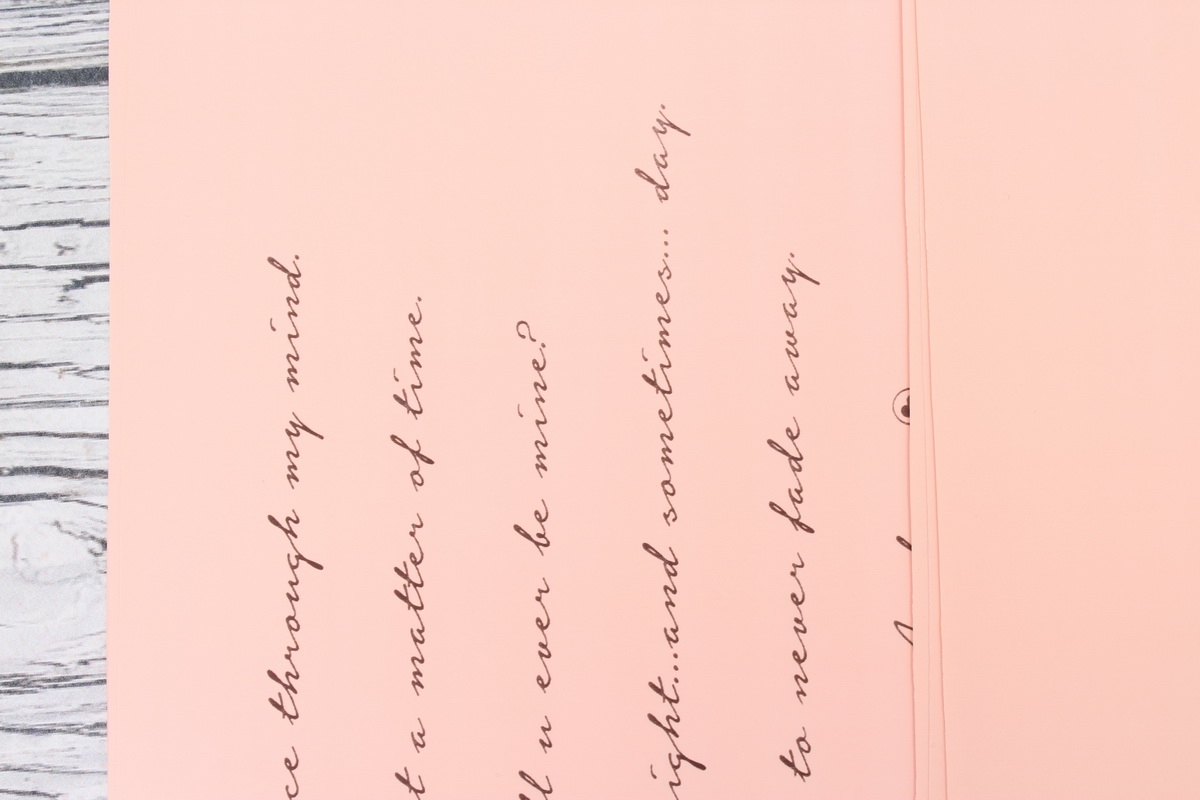 ce through my mind.
t a matter of time.
ll u ever be mine?
ight...and sometimes... day.
to never fade away.